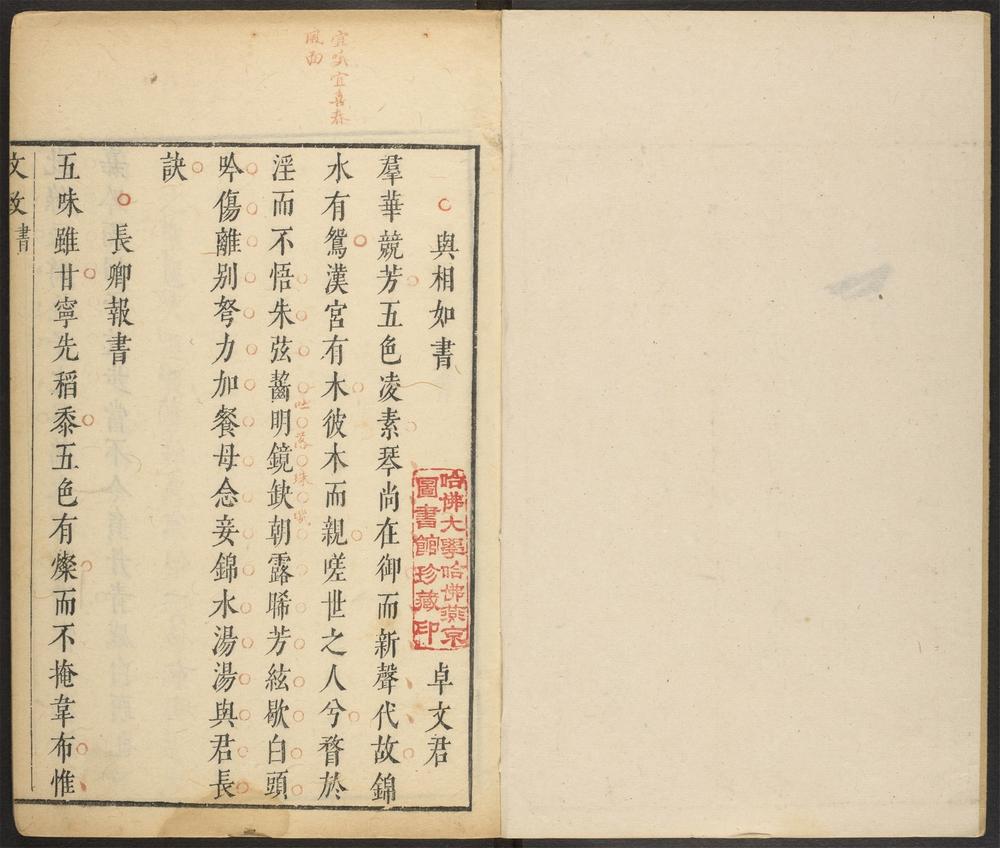 宜喜春
風雨
與相如書 卓文君
羣華競芳五色凌素琴尚在御而新聲代故錦
水有鴛漢宮有木彼木而親嗟世之人兮瞀於
淫而不悟朱弦齧明鏡鈌朝露晞芳絃歇白頭
吟傷離别努力加餐毋念妾錦水湯湯與君長
訣
長卿報書
五味雖甘寧先稻黍五色有燦而不掩韋布惟
文致書
哈佛大學哈佛燕京
圖書館珍藏印